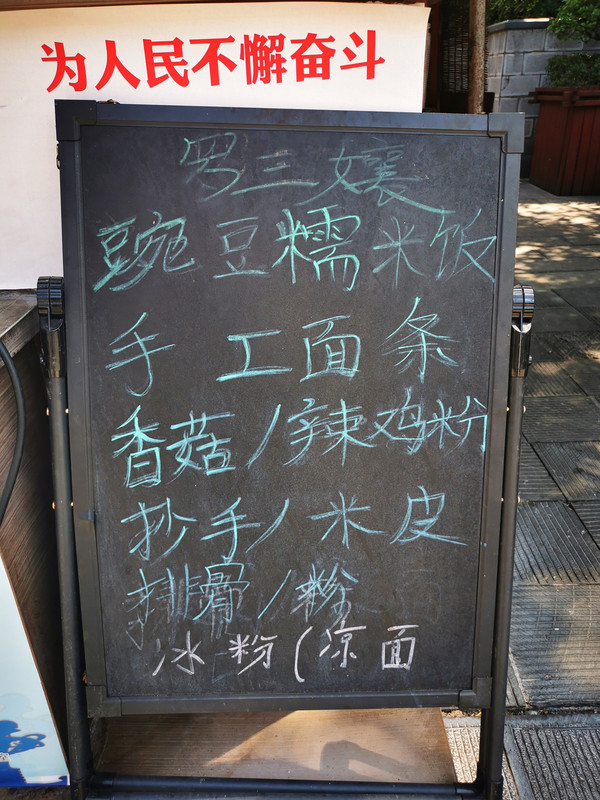 为人民不懈奋斗
罗三孃
豌豆糯米饭
手工面条
香菇/辣鸡粉
抄手/米皮
排骨/粉
冰粉(凉面